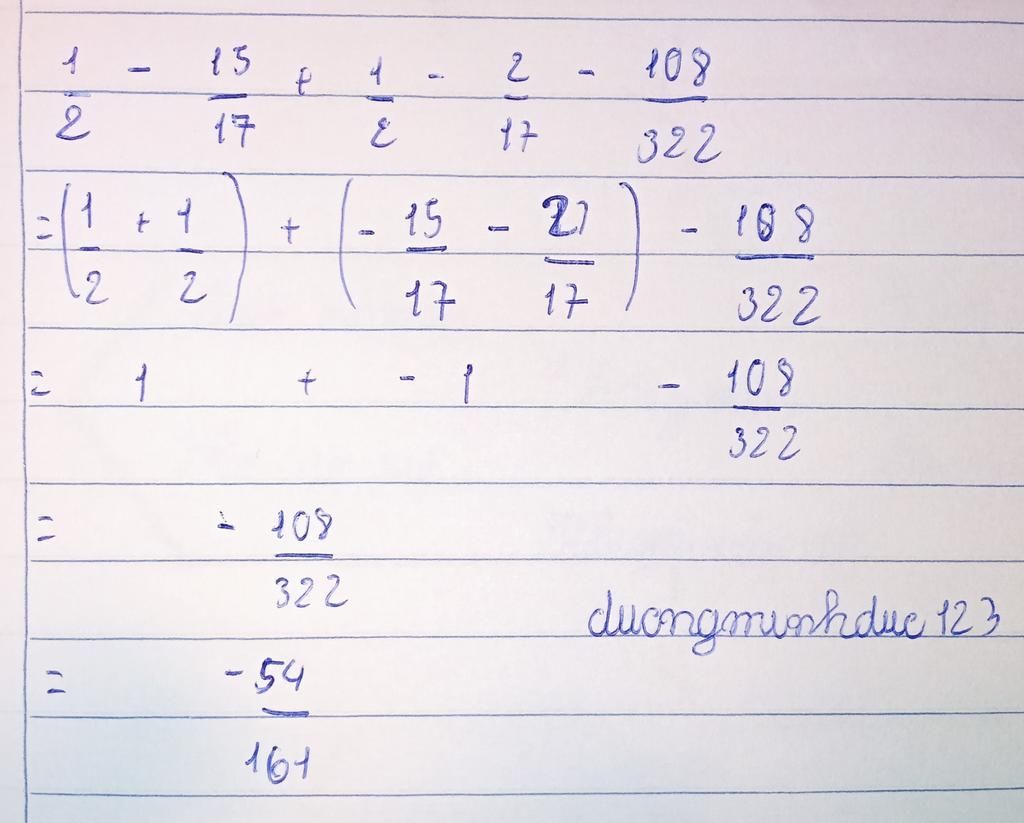 1/2 - 15/17 + 1/2 - 2/17 - 108/322
= (1/2 + 1/2) + (- 15/17 - 2/17) - 108/322
= 1 + - 1 - 108/322
= - 108/322
duongminhduc123
= -54/161